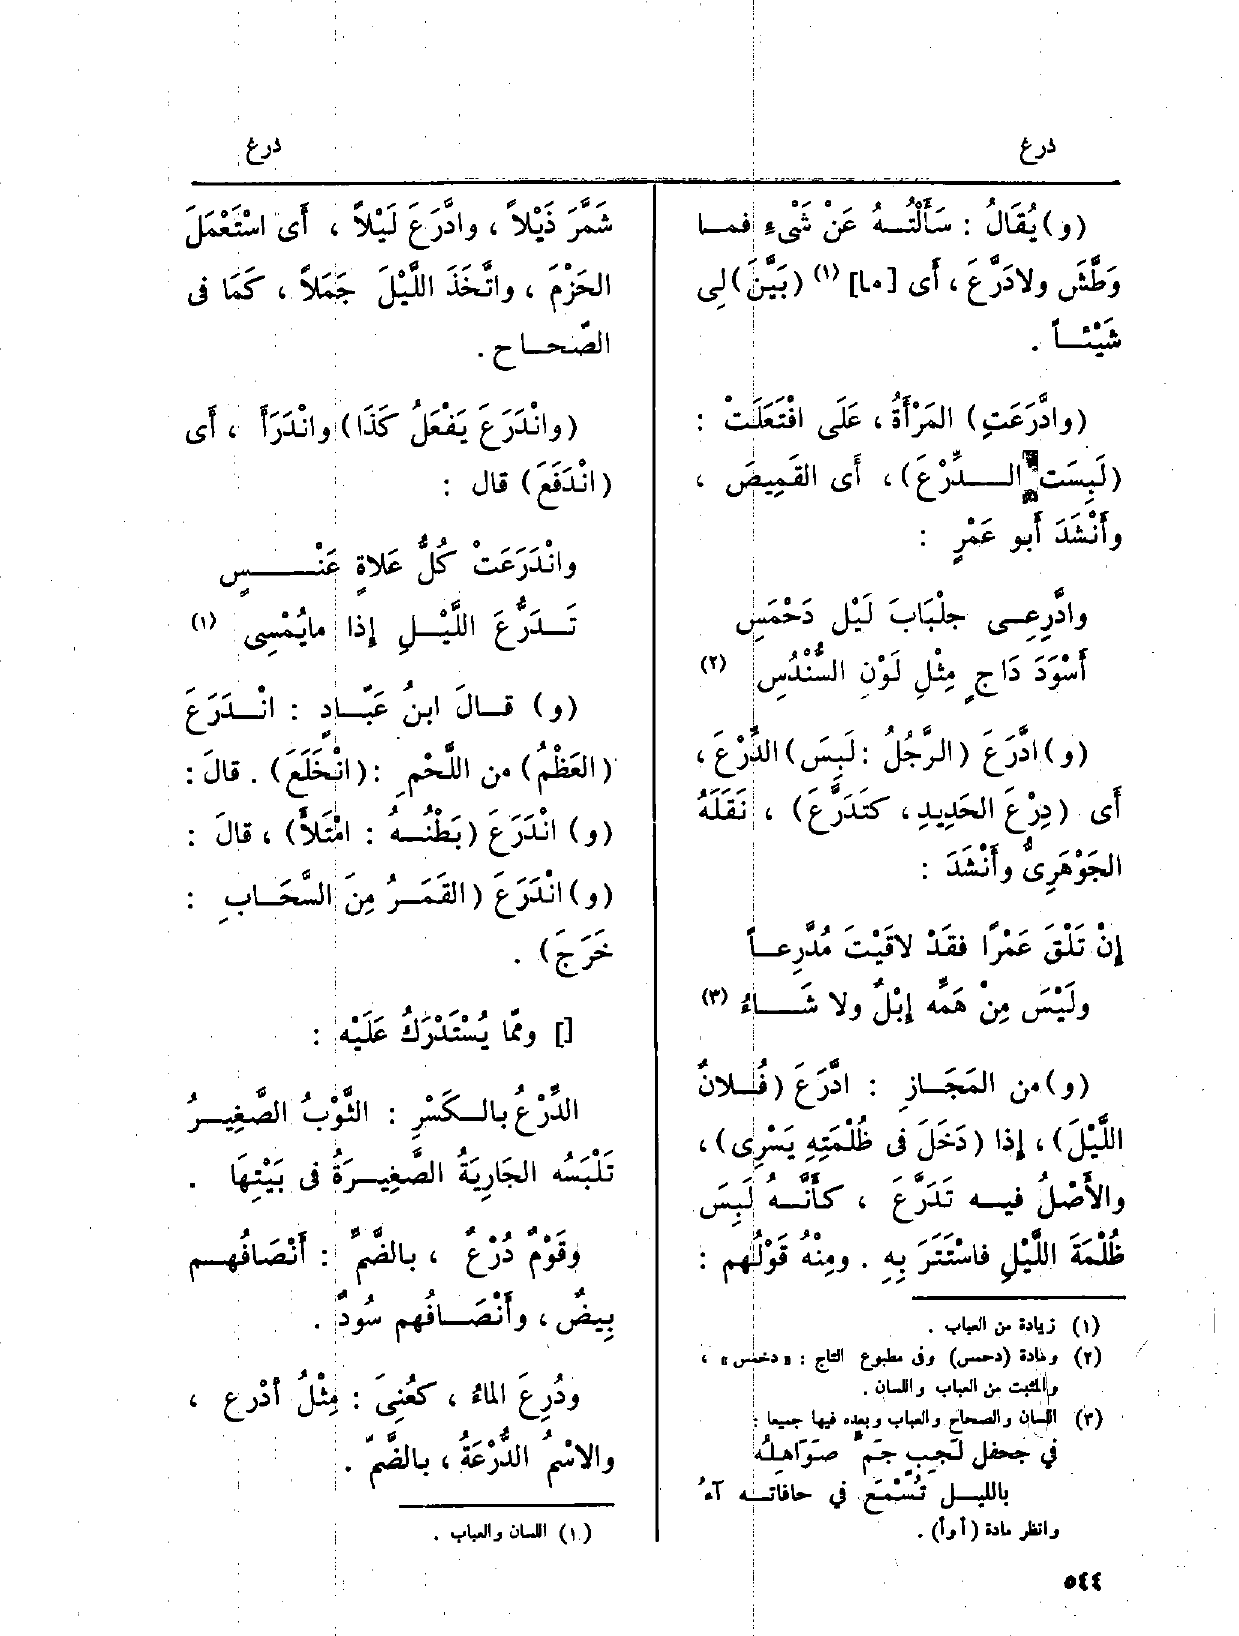 درع
درع
(و) يُقَالُ : سَأَلْتُــهُ عَنْ شَىْءٍ فمــا
وَطَّشَ ولادَرَّعَ ، أَى [ما] (١) (بَيَّنَ) لِى
شَيْئــاً .
(وادَّرَعَتِ) المَرْأَةُ ، عَلَى افْتَعَلَتْ :
(لَبِسَت الــدِّرْعَ) ، أَى القَمِيصَ ،
وأَنْشَدَ أَبو عَمْرٍ :
وادَّرِعِــى جِلْبَابَ لَيْل دَحْمَسِ
أَسْوَدَ دَاجٍ مِثْلِ لَوْنِ السُّنْدُسِ (٢)
(و) ادَّرَعَ (الرَّجُلُ : لَبِسَ) الدِّرْعَ ،
أَى (دِرْعَ الحَدِيدِ ، كتَدَرَّعَ) ، نَقَلَهُ
الجَوْهَرِىُّ وأَنْشَدَ :
إِنْ تَلْقَ عَمْرًا فقَدْ لاقَيْتَ مُدَّرِعــاً
ولَيْسَ مِنْ هَمِّه إِبْلٌ ولا شَــاءُ (٣)
(و) من المَجَــازِ : ادَّرَعَ (فُــلانٌ
اللَّيْلَ) ، إِذا (دَخَلَ فى ظُلْمَتِهِ يَسْرِى) ،
والأَصْلُ فيــه تَدَرَّعَ ، كأَنَّــهُ لَبِسَ
ظُلْمَةَ اللَّيْلِ فاسْتَتَرَ بِهِ . ومِنْهُ قَوْلُهم :
(١) زيادة من العباب .
(٢) ومادة (دحمس) وفى مطبوع التاج : «دخمس» ،
والمثبت من العباب واللسان .
(٣) اللسان والصحاح والعباب وبعده فيها جميعا :
في جحفل لَجِبٍ جَمٍّ صَوَاهِلُهُ
بالليــل تُسْمَع في حافاتــه آءُ
وانظر مادة (أوأ) .
٥٤٤
شَمَّرَ ذَيْلاً ، وادَّرَعَ لَيْلاً ، أَى اسْتَعْمَلَ
الحَزْمَ ، واتَّخَذَ اللَّيْلَ جَمَلاً ، كَمَا فى
الصّحــاح .
(وانْدَرَعَ يَفْعَلُ كَذَا) وانْدَرَأَ ، أَى
(انْدَفَعَ) قال :
وانْدَرَعَتْ كُلُّ عَلاةٍ عَنْــسٍ
تَــدَرُّعَ اللَّيْــلِ إِذا مايُمْسِى (١)
(و) قــالَ ابنُ عَبّــادٍ : انْــدَرَعَ
(العَظْمُ) من اللَّحْمِ : (انْخَلَعَ) . قالَ :
(و) انْدَرَعَ (بَطْنُــهُ : امْتَلأَ) ، قالَ :
(و) انْدَرَعَ (القَمَــرُ مِنَ السَّحَــابِ :
خَرَجَ) .
[] ومّا يُسْتَدْرَكُ عَلَيْه :
الدِّرْعُ بالــكَسْرِ : الثَّوْبُ الصَّغِيــرُ
تَلْبَسُه الجَارِيَةُ الصَّغِيــرَةُ فى بَيْتِهَا .
وقَوْمٌ دُرْعٌ ، بالضَّمِّ : أَنْصَافُهــم
بِيضٌ ، وأَنْصَــافُهم سُودٌ .
ودُرِعَ الماءُ ، كعُنِىَ : مِثْلُ أُدْرِعَ ،
والاسْمُ الدُّرْعَةُ ، بالضَّمّ .
(١) اللسان والعباب .